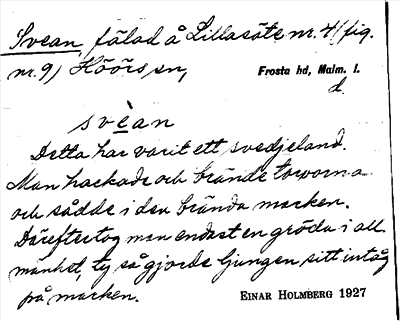 Svean, fälad å Lillasäte nr. 4 (fig.
nr. 9) Höörs sn,
Frosta hd, Malm. l.
d.
svèan
Detta har varit ett svedjeland.
Man hackade och brände torvorna
och sådde i den brända marken.
Därefter tog man endast en gröda i all-
mänhet, ty så gjorde ljungen sitt intåg
på marken.
EINAR HOLMBERG 1927